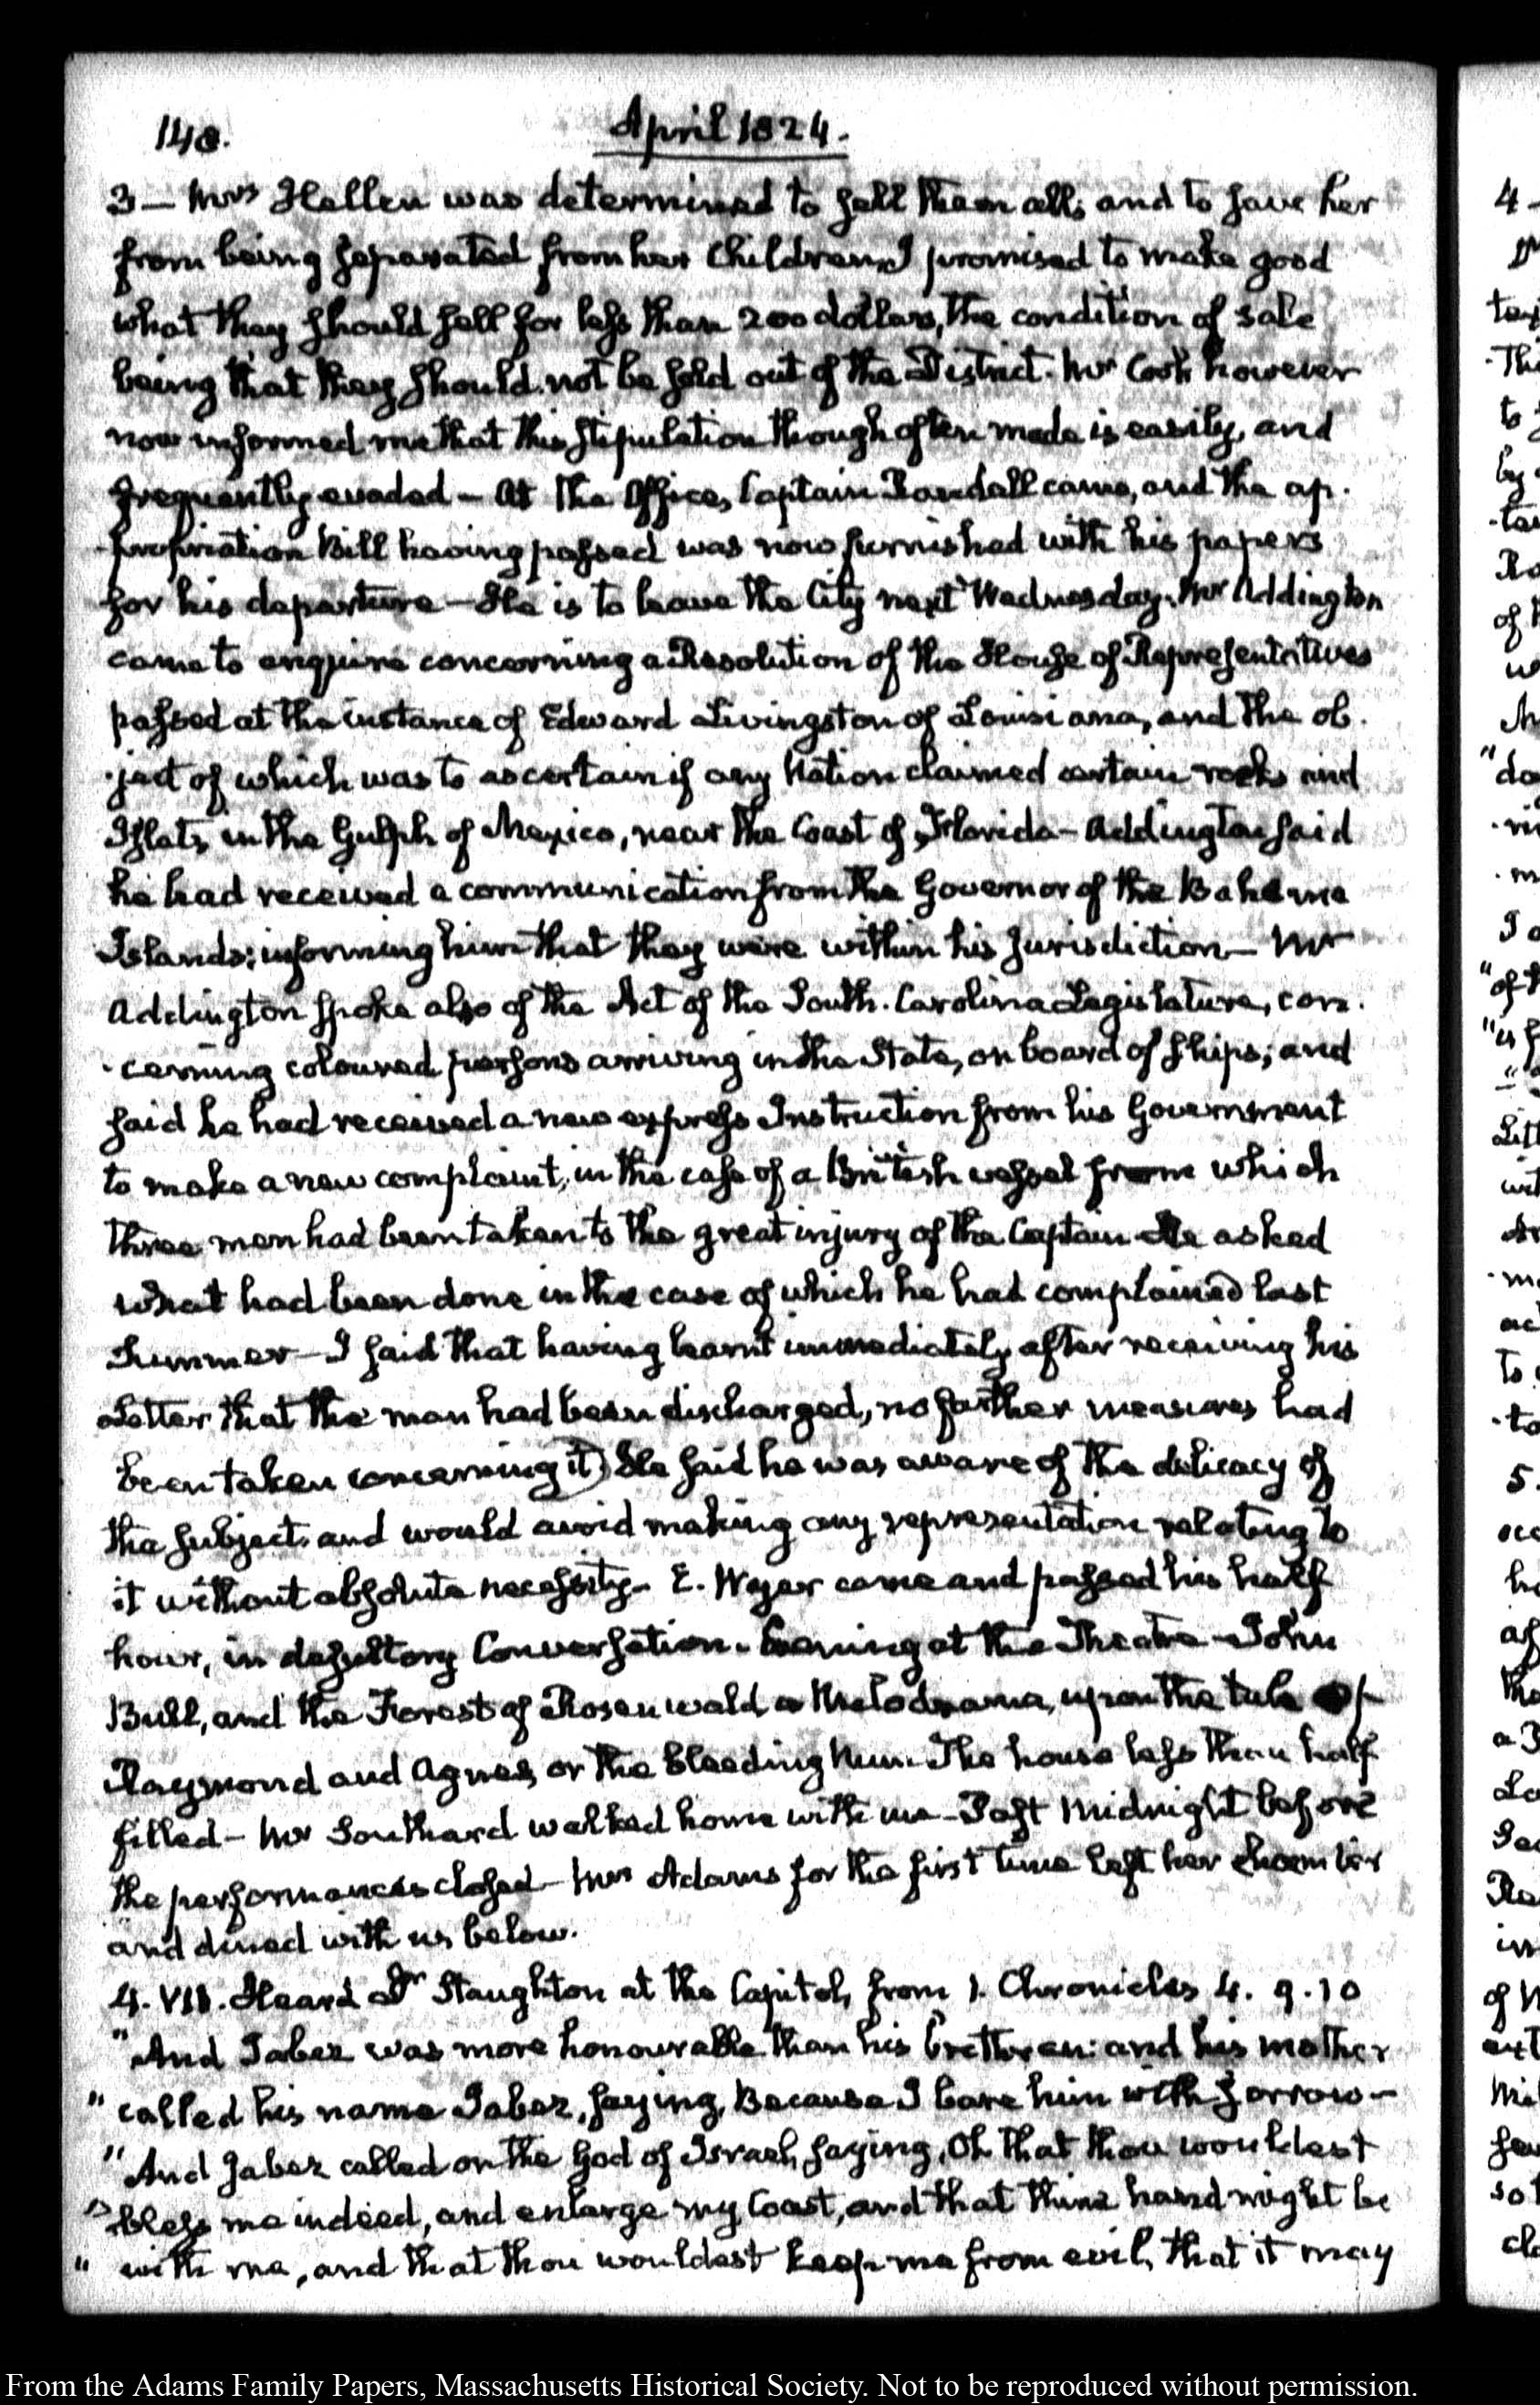 148.
April 1824.
3 — Mrs Hellen was determined to sell them all; and to save her
from being separated from her Children, I promised to make good
what they should sell for less than 200 dollars, the condition of sale
being that they should not be sold out of the District. Mr Cook however
now informed me that this stipulation though often made is easily, and
frequently evaded — At the Office, Captain Randall came, and the ap-
-propriation Bill having passed was now furnished with his papers
for his departure — He is to leave the City next Wednesday. Mr Addington
came to enquire concerning a Resolution of the House of Representatives
passed at the instance of Edward Livingston of Louisiana, and the ob-
-ject of which was to ascertain if any Nation claimed certain rocks and
Islets, in the Gulph of Mexico, near the Coast of Florida — Addington said
he had received a communication from the Governor of the Bahama
Islands; informing him that they were within his Jurisdiction — Mr
Addington spoke also of the Act of the South-Carolina Legislature, con-
-cerning coloured persons arriving in the State, on board of ships; and
said he had received a new express Instruction from his Government
to make a new complaint, in the case of a British vessel from which
three men had been taken to the great injury of the Captain He asked
what had been done in the case of which he had complained last
Summer — I said that having learnt immediately after receiving his
Letter that the man had been discharged, no further measures had
been taken concerning it) He said he was aware of the delicacy of
the subject, and would avoid making any representation relating to
it without absolute necessity — E. Wyer came and passed his half
hour, in desultory Conversation. Evening at the Theatre — John
Bull, and the Forest of Rosenwald a Melodrama, upon the tale of
Raymond and Agnes, or the Bleeding Nun. The house less than half
filled — Mr Southard walked home with me — Past Midnight before
the performances closed — Mrs Adams for the first time left her chamber
and dined with us below.
4. VII. Heard Dr Staughton at the Capitol, from 1. Chronicles 4. 9.10
"And Jabez was more honourable than his brethren: and his mother
" called his name Jabez, saying, Because I bare him with sorrow —
" And Jabez called on the God of Israel, saying, Oh that thou wouldest
" bless me indeed, and enlarge my Coast, and that thine hand might be
" with me, and that thou wouldest keep me from evil, that it may
From the Adams Family Papers, Massachusetts Historical Society. Not to be reproduced without permission.